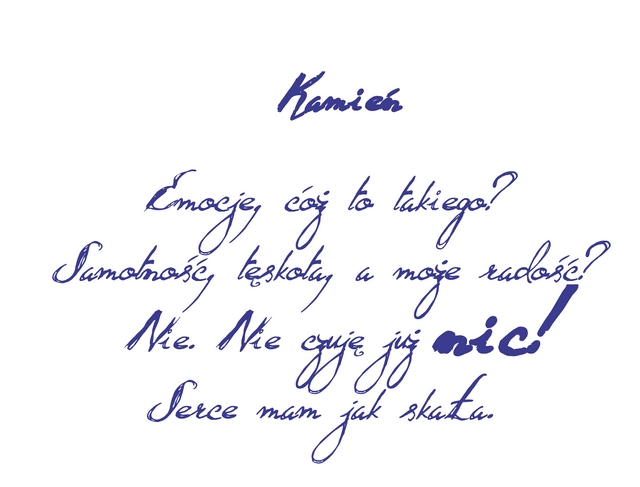 Kamień
Emocje, ćoż to takiego?
Samotność, tęskota, a może radość?
Nie. Nie czuję już nic!
Serce mam jak skała.